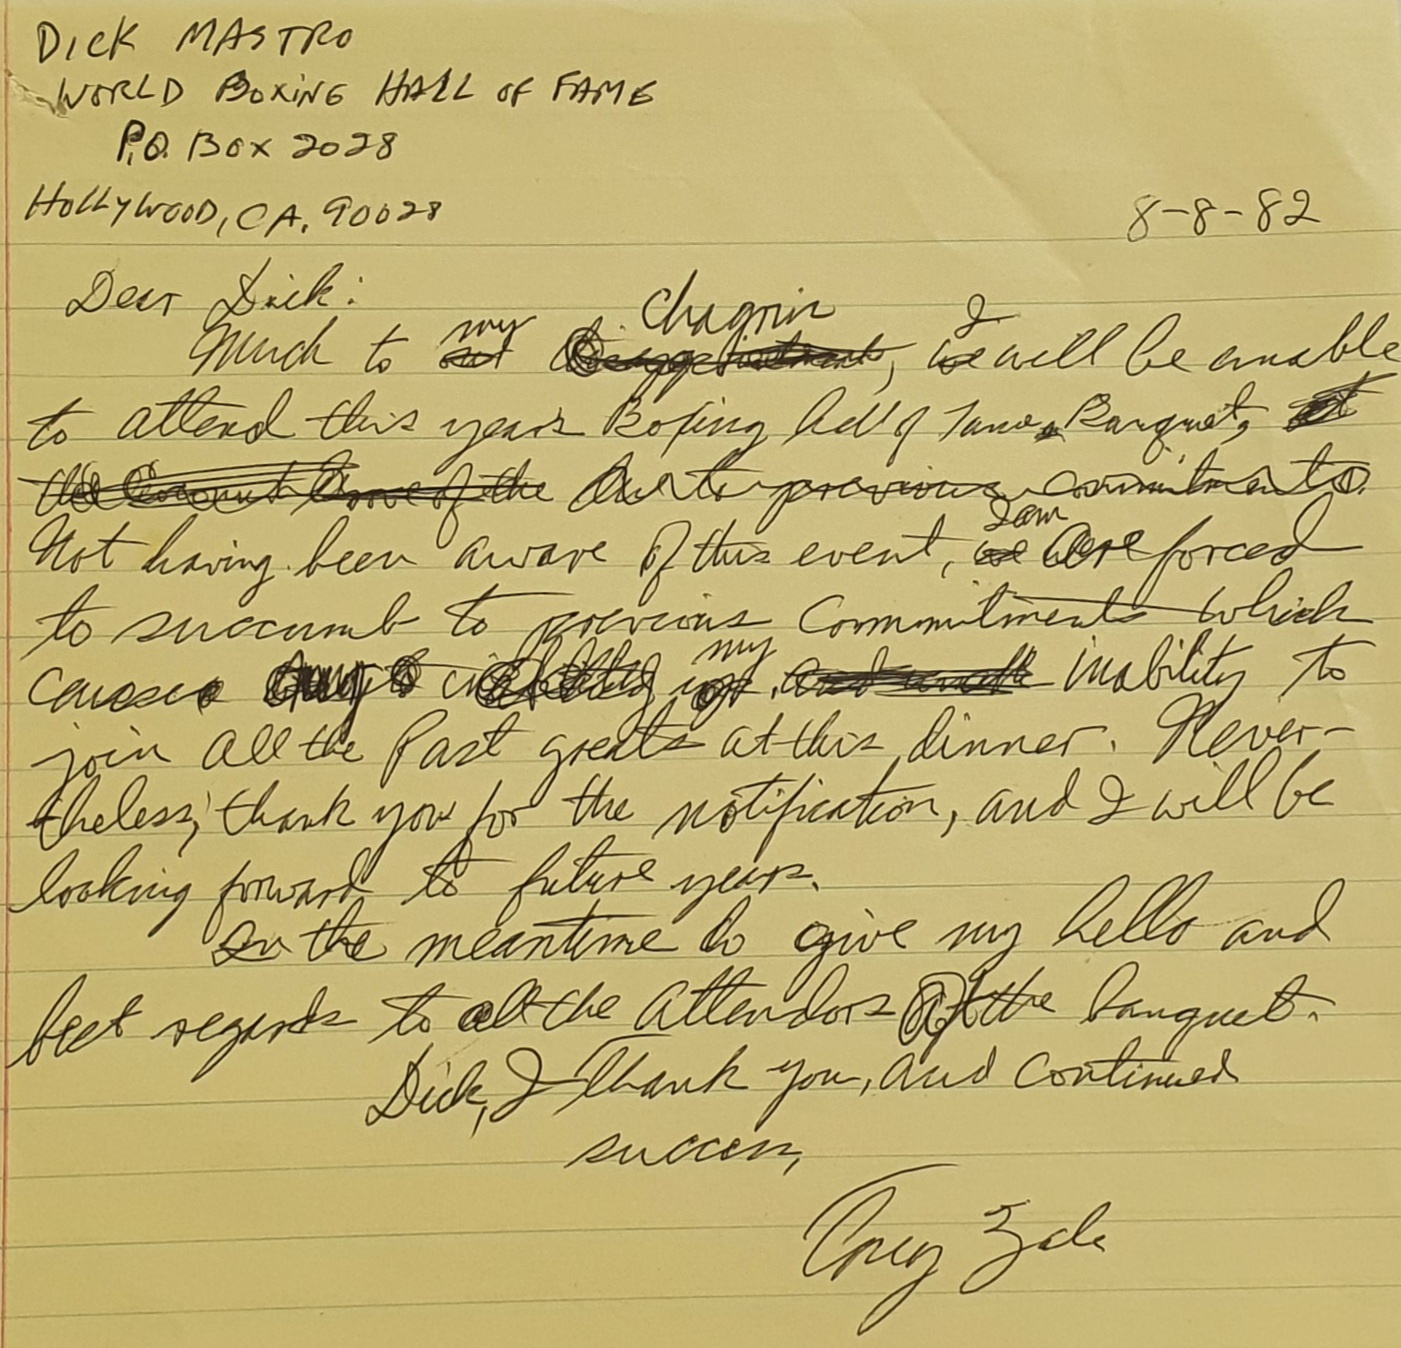 DICK MASTRO
WORLD BOXING HALL OF FAME
P.O. BOX 2028
HOLLYWOOD, CA. 90028
8-8-82
Dear Dick:
Much to my Chagrin, I will be unable
to attend this years Boxing hall of Fame Banquet,
due to previous commitments.
Not having been aware of this event, I am forced
to succumb to previous commitments which
cause my inability to
join all the Past greats at this dinner. Never-
theless, thank you for the notification, and I will be
looking forward to future years.
In the meantime do give my hello and
best regards to all the attendors of the banquet.
Dick, I Thank you, and continued
success,
Tony Zale